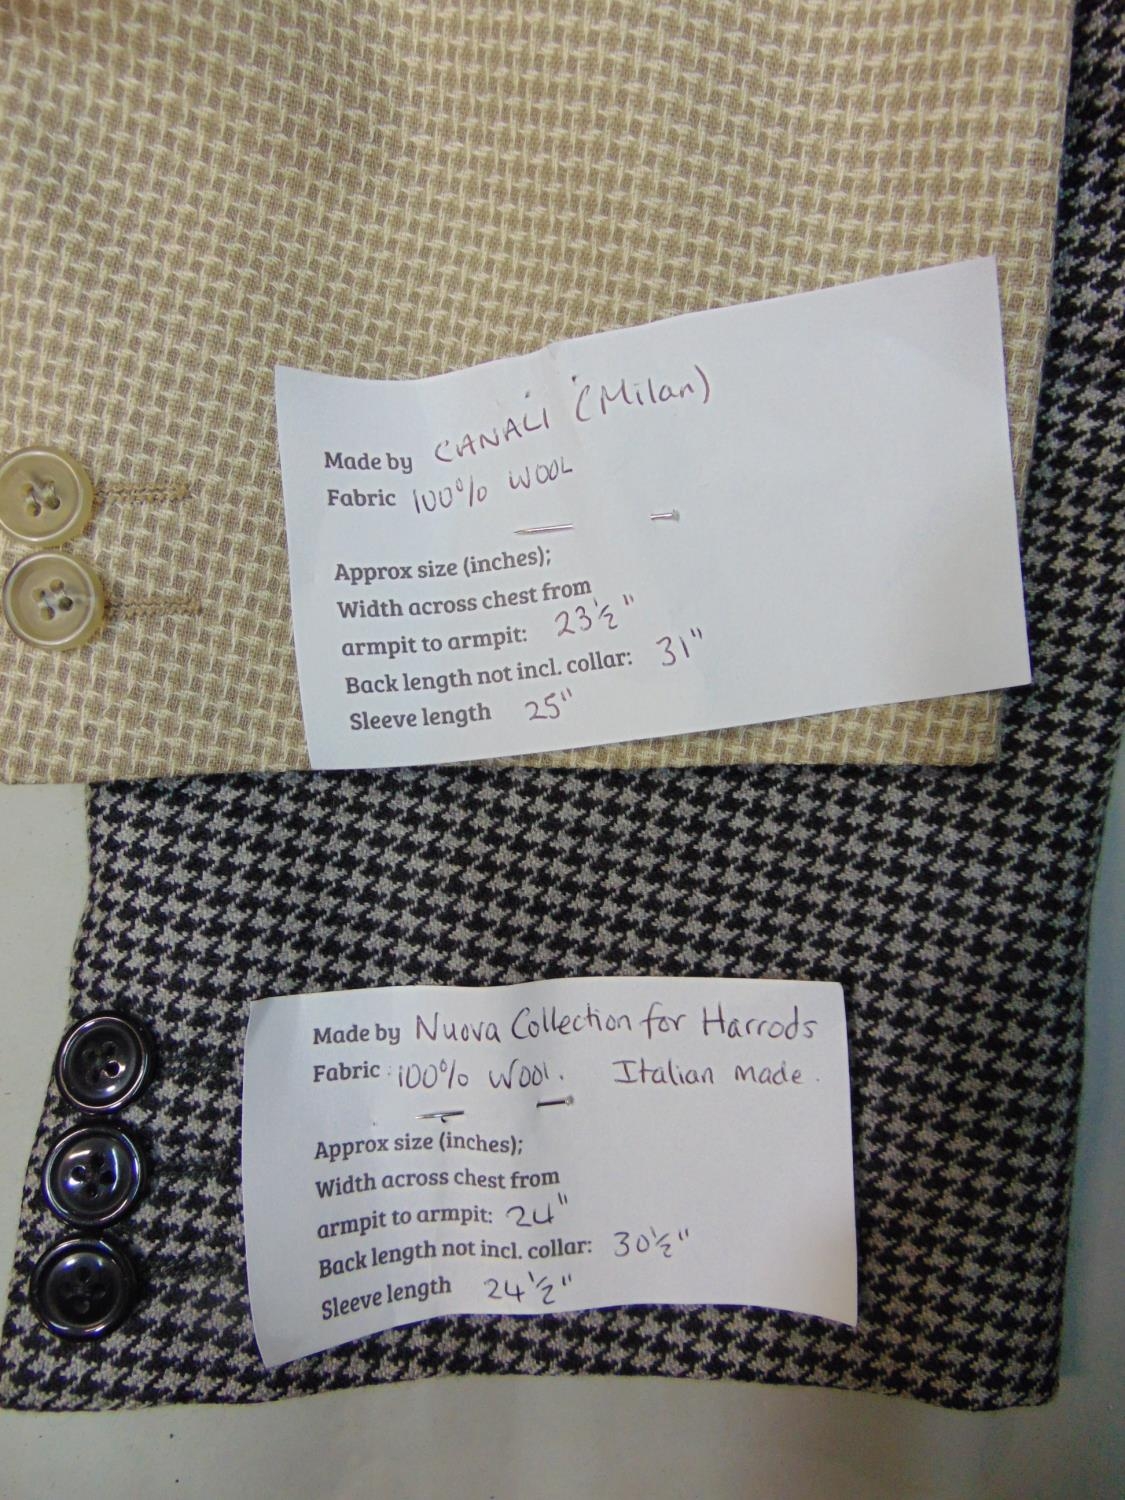 Made by CANALI (Milan)
Fabric 100% WOOL
Approx size (inches);
Width across chest from
armpit to armpit: 23½"
Back length not incl. collar: 31"
Sleeve length 25"
Made by Nuova Collection for Harrods
Fabric : 100% Wool. Italian made.
Approx size (inches);
Width across chest from
armpit to armpit: 24"
Back length not incl. collar: 30½"
Sleeve length 24½"